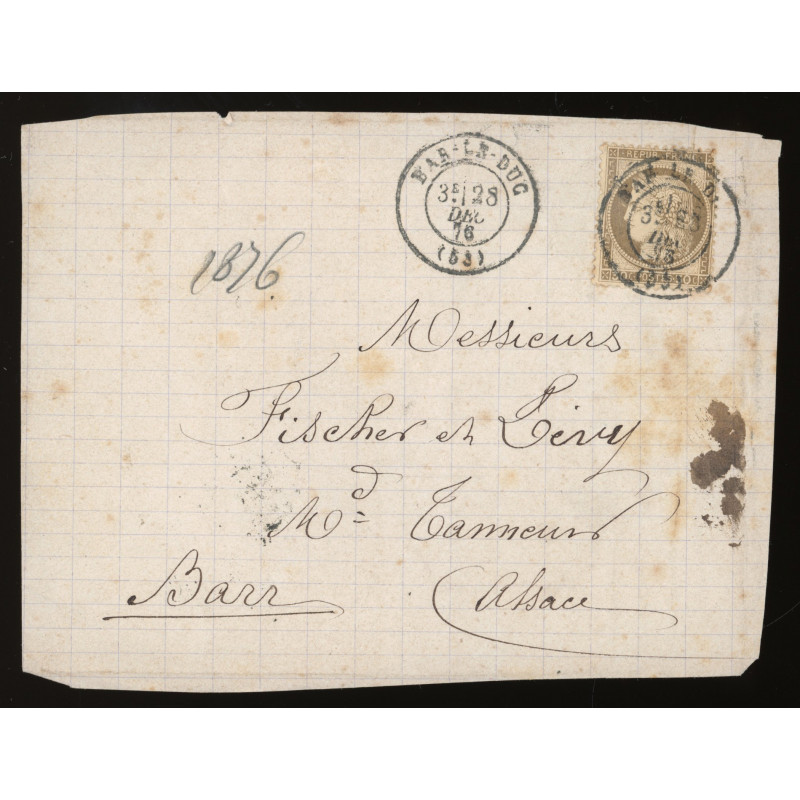 BAR-LE-DUC
3E 28
DEC
76
(53)
REPUB FRANC
BAR LE D
3E 28
DEC
76
(53)
30 POSTES 30
1876
Messieurs
Fischer et Lévy
Md Tanneurs
Barr Alsace